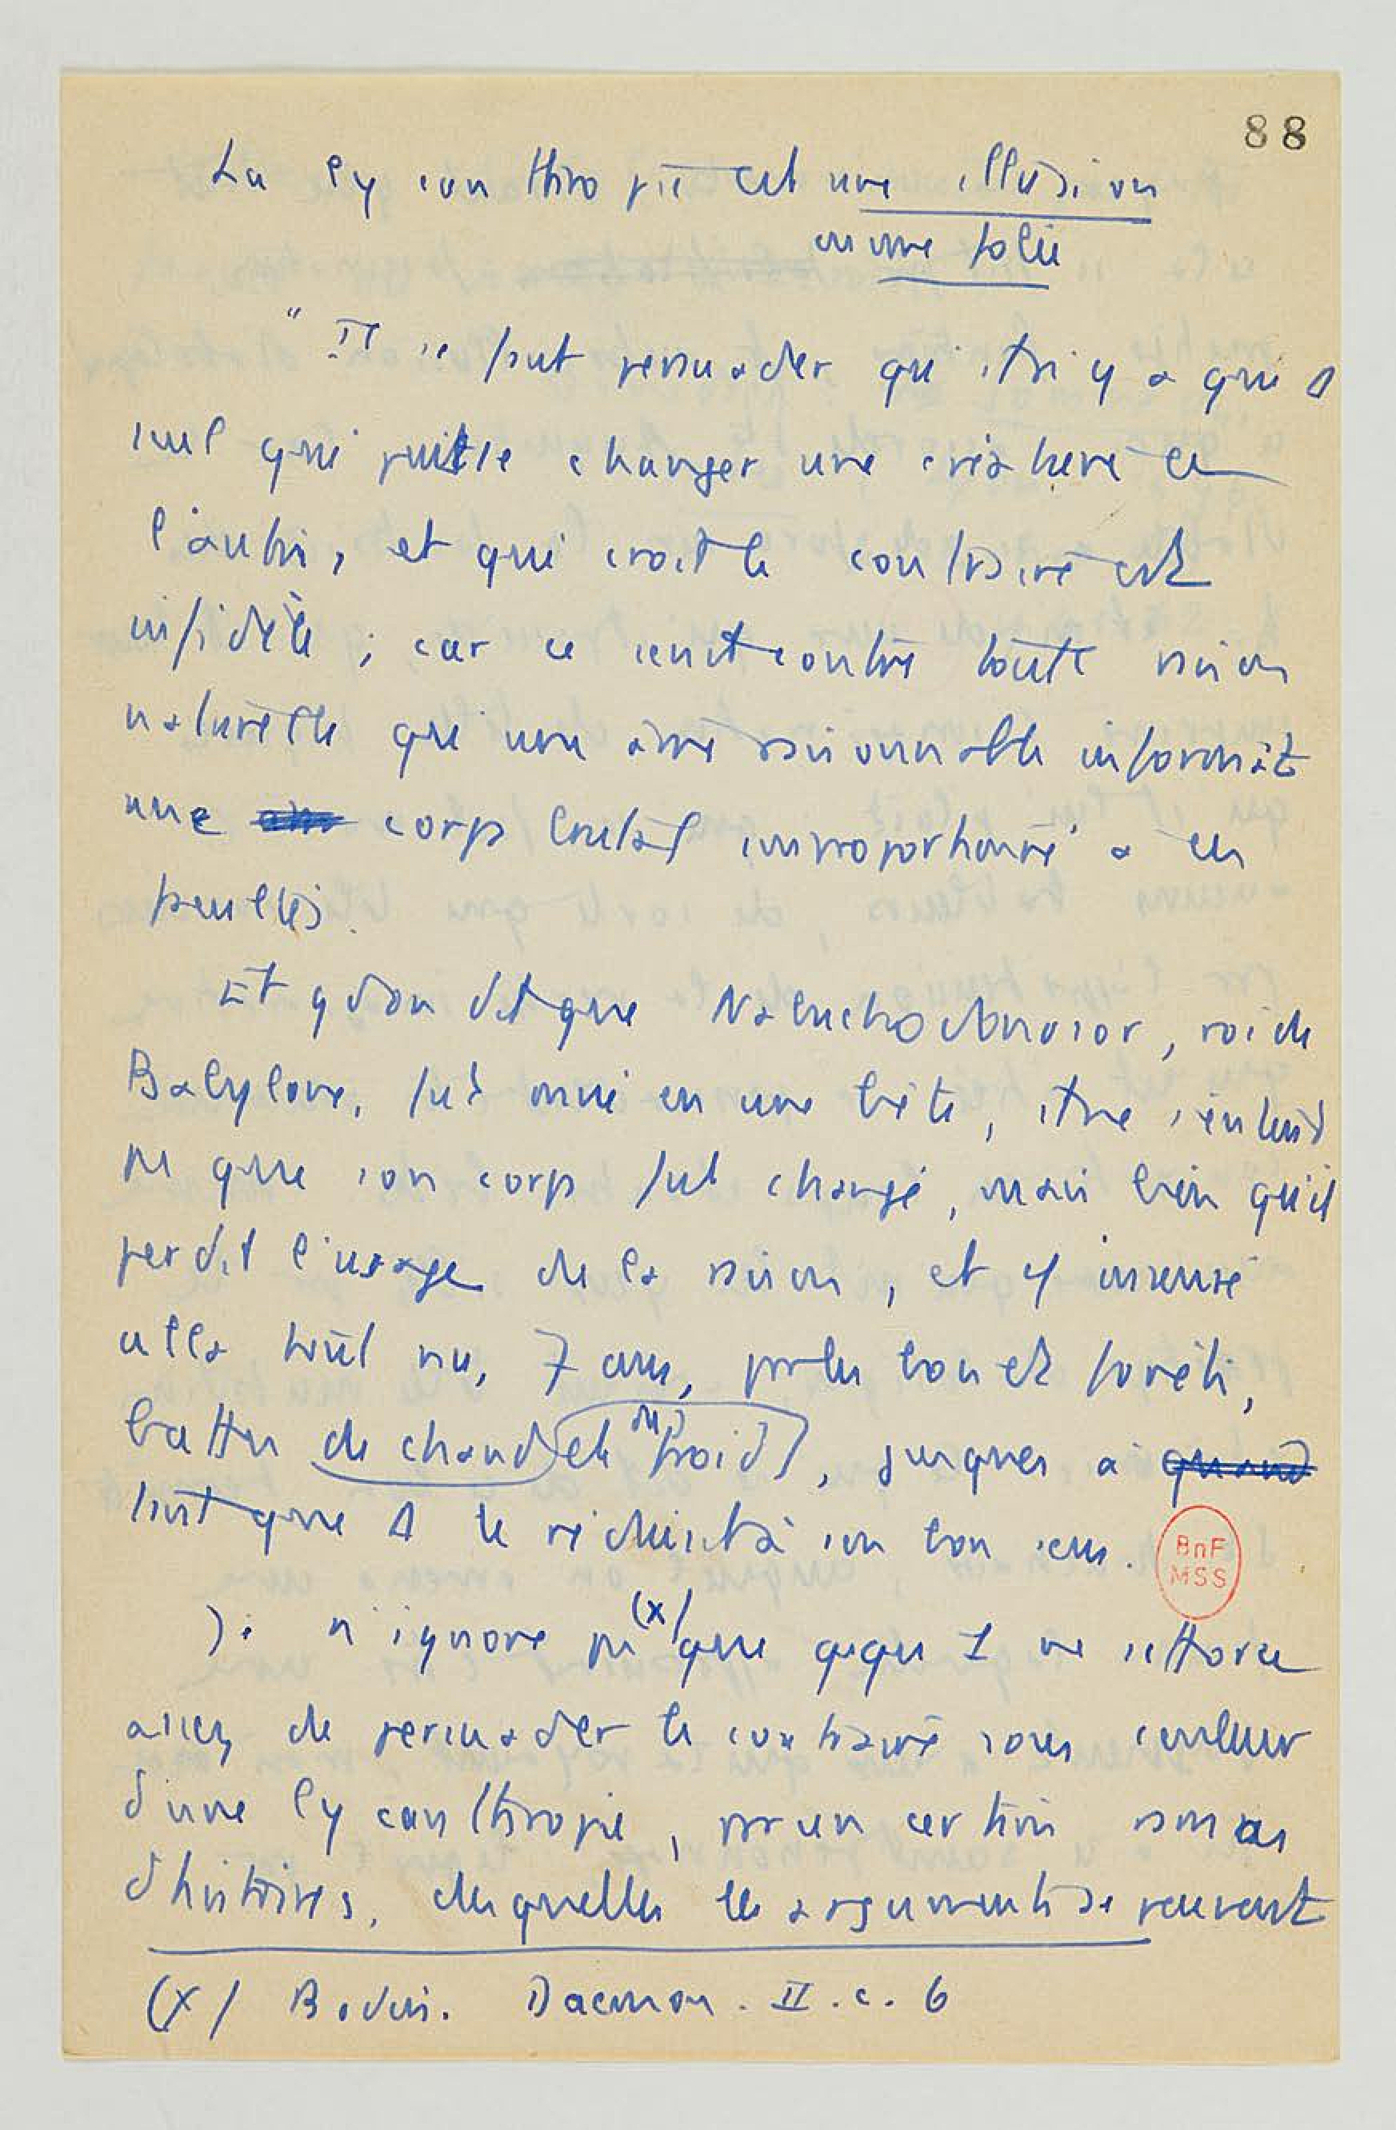 88
La lycanthropie est une illusion
ou une folie
" Il se faut persuader qu'il n'y a que Δ
seul qui puisse changer une créature en
l'autre, et qui croit le contraire est
infidèle ; car ce serait contre toute raison
naturelle qu'une âme raisonnable informât
une corps brutal improportionné à ces
pensées.
Et qd on dit que Nabuchodonosor, roi de
Babylone, fut mué en une bête, il ne s'entend
pas que son corps fut changé, mais bien qu'il
perdit l'usage de la raison, et q/ insensé
alla tout nu, 7 ans, par les bois et forêts,
battu de chaud et de froid, jusques à
tant que Δ le réduisit à son bon sens.
BnF
MSS
Je n'ignore pas (x) que qque 1 ne s'efforce
assez de persuader le contraire sous couleur
d'une lycanthropie, par un certain ramas
d'histoires, desquelles les arguments se peuvent
(x) Bodin. Daemon. II. c. 6